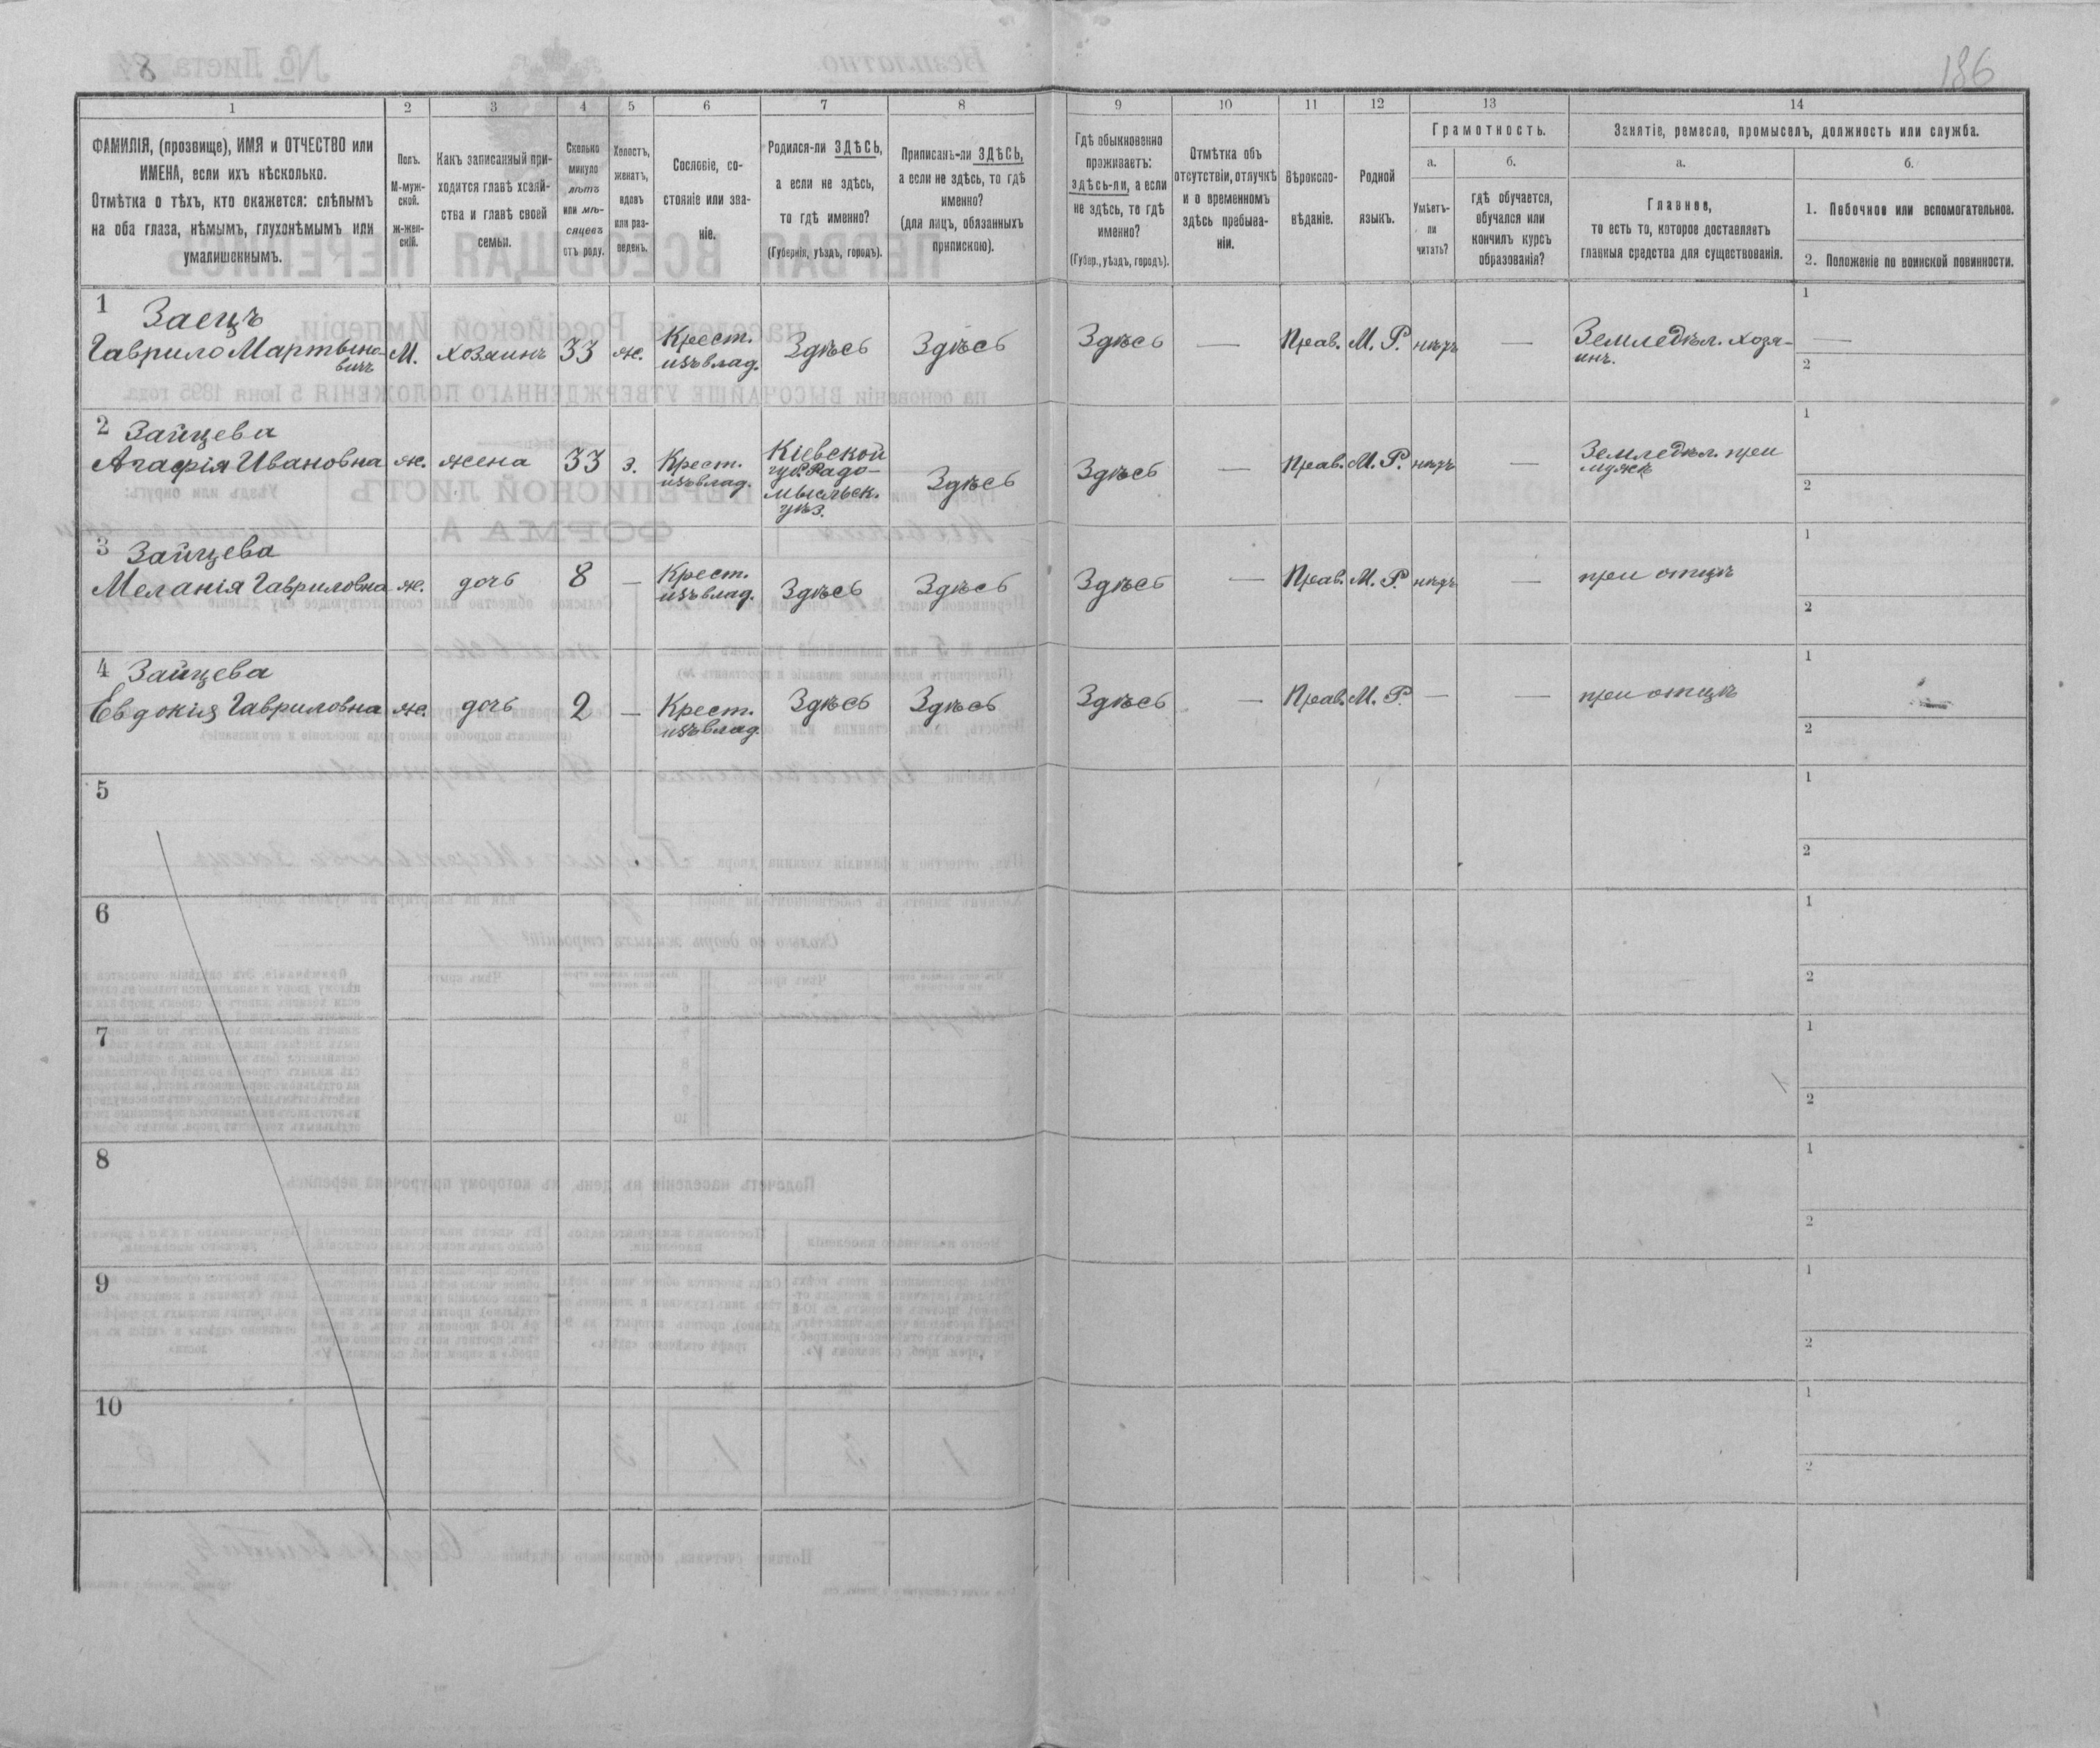 186
1
2
3
4
5
6
7
8
9
10
11
12
13
14
ФАМИЛІЯ, (прозвище), ИМЯ и ОТЧЕСТВО или
ИМЕНА, если ихъ нѣсколько.
Отмѣтка о тѣхъ, кто окажется: слѣпымъ
на оба глаза, нѣмымъ, глухонѣмымъ или
умалишеннымъ.
Полъ.
М-муж-
ской.
Ж-жен-
скій.
Какъ записанный при-
ходится главѣ хозяй-
ства и главѣ своей
семьи.
Сколько
минуло
лѣтъ
или мѣ-
сяцевъ
отъ роду.
Холостъ,
женатъ,
вдовъ
или раз-
веденъ.
Сословіе, со-
стояніе или зва-
ніе.
Родился-ли ЗДѢСЬ,
а если не здѣсь,
то гдѣ именно?
(Губернія, уѣздъ, городъ).
Приписанъ-ли ЗДѢСЬ,
а если не здѣсь, то гдѣ
именно?
(для лицъ, обязанныхъ
припискою).
Гдѣ обыкновенно
проживаетъ:
здѣсь-ли, а если
не здѣсь, то гдѣ
именно?
(Губер., уѣздъ, городъ).
Отмѣтка объ
отсутствіи, отлучкѣ
и о временномъ
здѣсь пребыва-
ніи.
Вѣроиспо-
вѣданіе.
Родной
языкъ.
Грамотность.
а.
Умѣетъ-
ли
читать?
б.
гдѣ обучается,
обучался или
кончилъ курсъ
образованія?
Занятіе, ремесло, промыселъ, должность или служба.
а.
Главное,
то есть то, которое доставляетъ
главныя средства для существованія.
б.
1. Побочное или вспомогательное.
2. Положеніе по воинской повинности.
1 Заецъ
Гаврило Мартыно-
вичъ
М. хозяинъ 33 ж. Крест.
изъ влад. Здѣсь Здѣсь Здѣсь — Прав. М. Р. нѣтъ — Земледѣл. хозя-
инъ.
1 —
2
2 Зайцева
Агафія Ивановна ж. жена 33 з. Крест.
изъ влад.
Кіевской
губ. Радо-
мысльск.
уѣз.
Здѣсь Здѣсь — Прав. М. Р. нѣтъ — Земледѣл. при
мужѣ
1
2
3 Зайцева
Меланія Гавриловна ж. дочь 8 — Крест.
изъ влад. Здѣсь Здѣсь Здѣсь — Прав. М. Р. нѣтъ — при отцѣ
1
2
4 Зайцева
Евдокия Гавриловна ж. дочь 2 — Крест.
изъ влад. Здѣсь Здѣсь Здѣсь — Прав. М. Р. — — при отцѣ
1
2
5
1
2
6
1
2
7
1
2
8
1
2
9
1
2
10
1
2